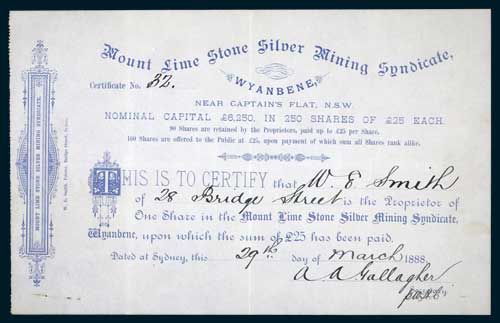 Mount Lime Stone Silver Mining Syndicate,
Certificate No. 32.
WYANBENE,
NEAR CAPTAIN'S FLAT, N.S.W.
NOMINAL CAPITAL £6,250, IN 250 SHARES OF £25 EACH.
90 Shares are retained by the Proprietors, paid up to £25 per Share.
160 Shares are offered to the Public at £25, upon payment of which sum all Shares rank alike.
THIS IS TO CERTIFY that W. E Smith
of 28 Bridge Street is the Proprietor of
One Share in the Mount Lime Stone Silver Mining Syndicate,
Wyanbene, upon which the sum of £25 has been paid.
Dated at Sydney, this 29th day of March 1888.
A A Gallagher
MOUNT LIME STONE SILVER MINING SYNDICATE.
W. E. Smith, Printer, Bridge Street, Sydney.